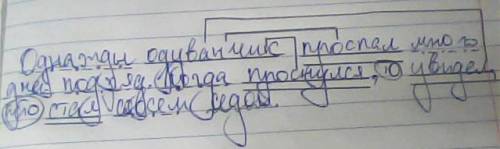 Однажды одуванчик проспал много
дней подряд. Когда проснулся, то увидел,
что стал совсем седой.